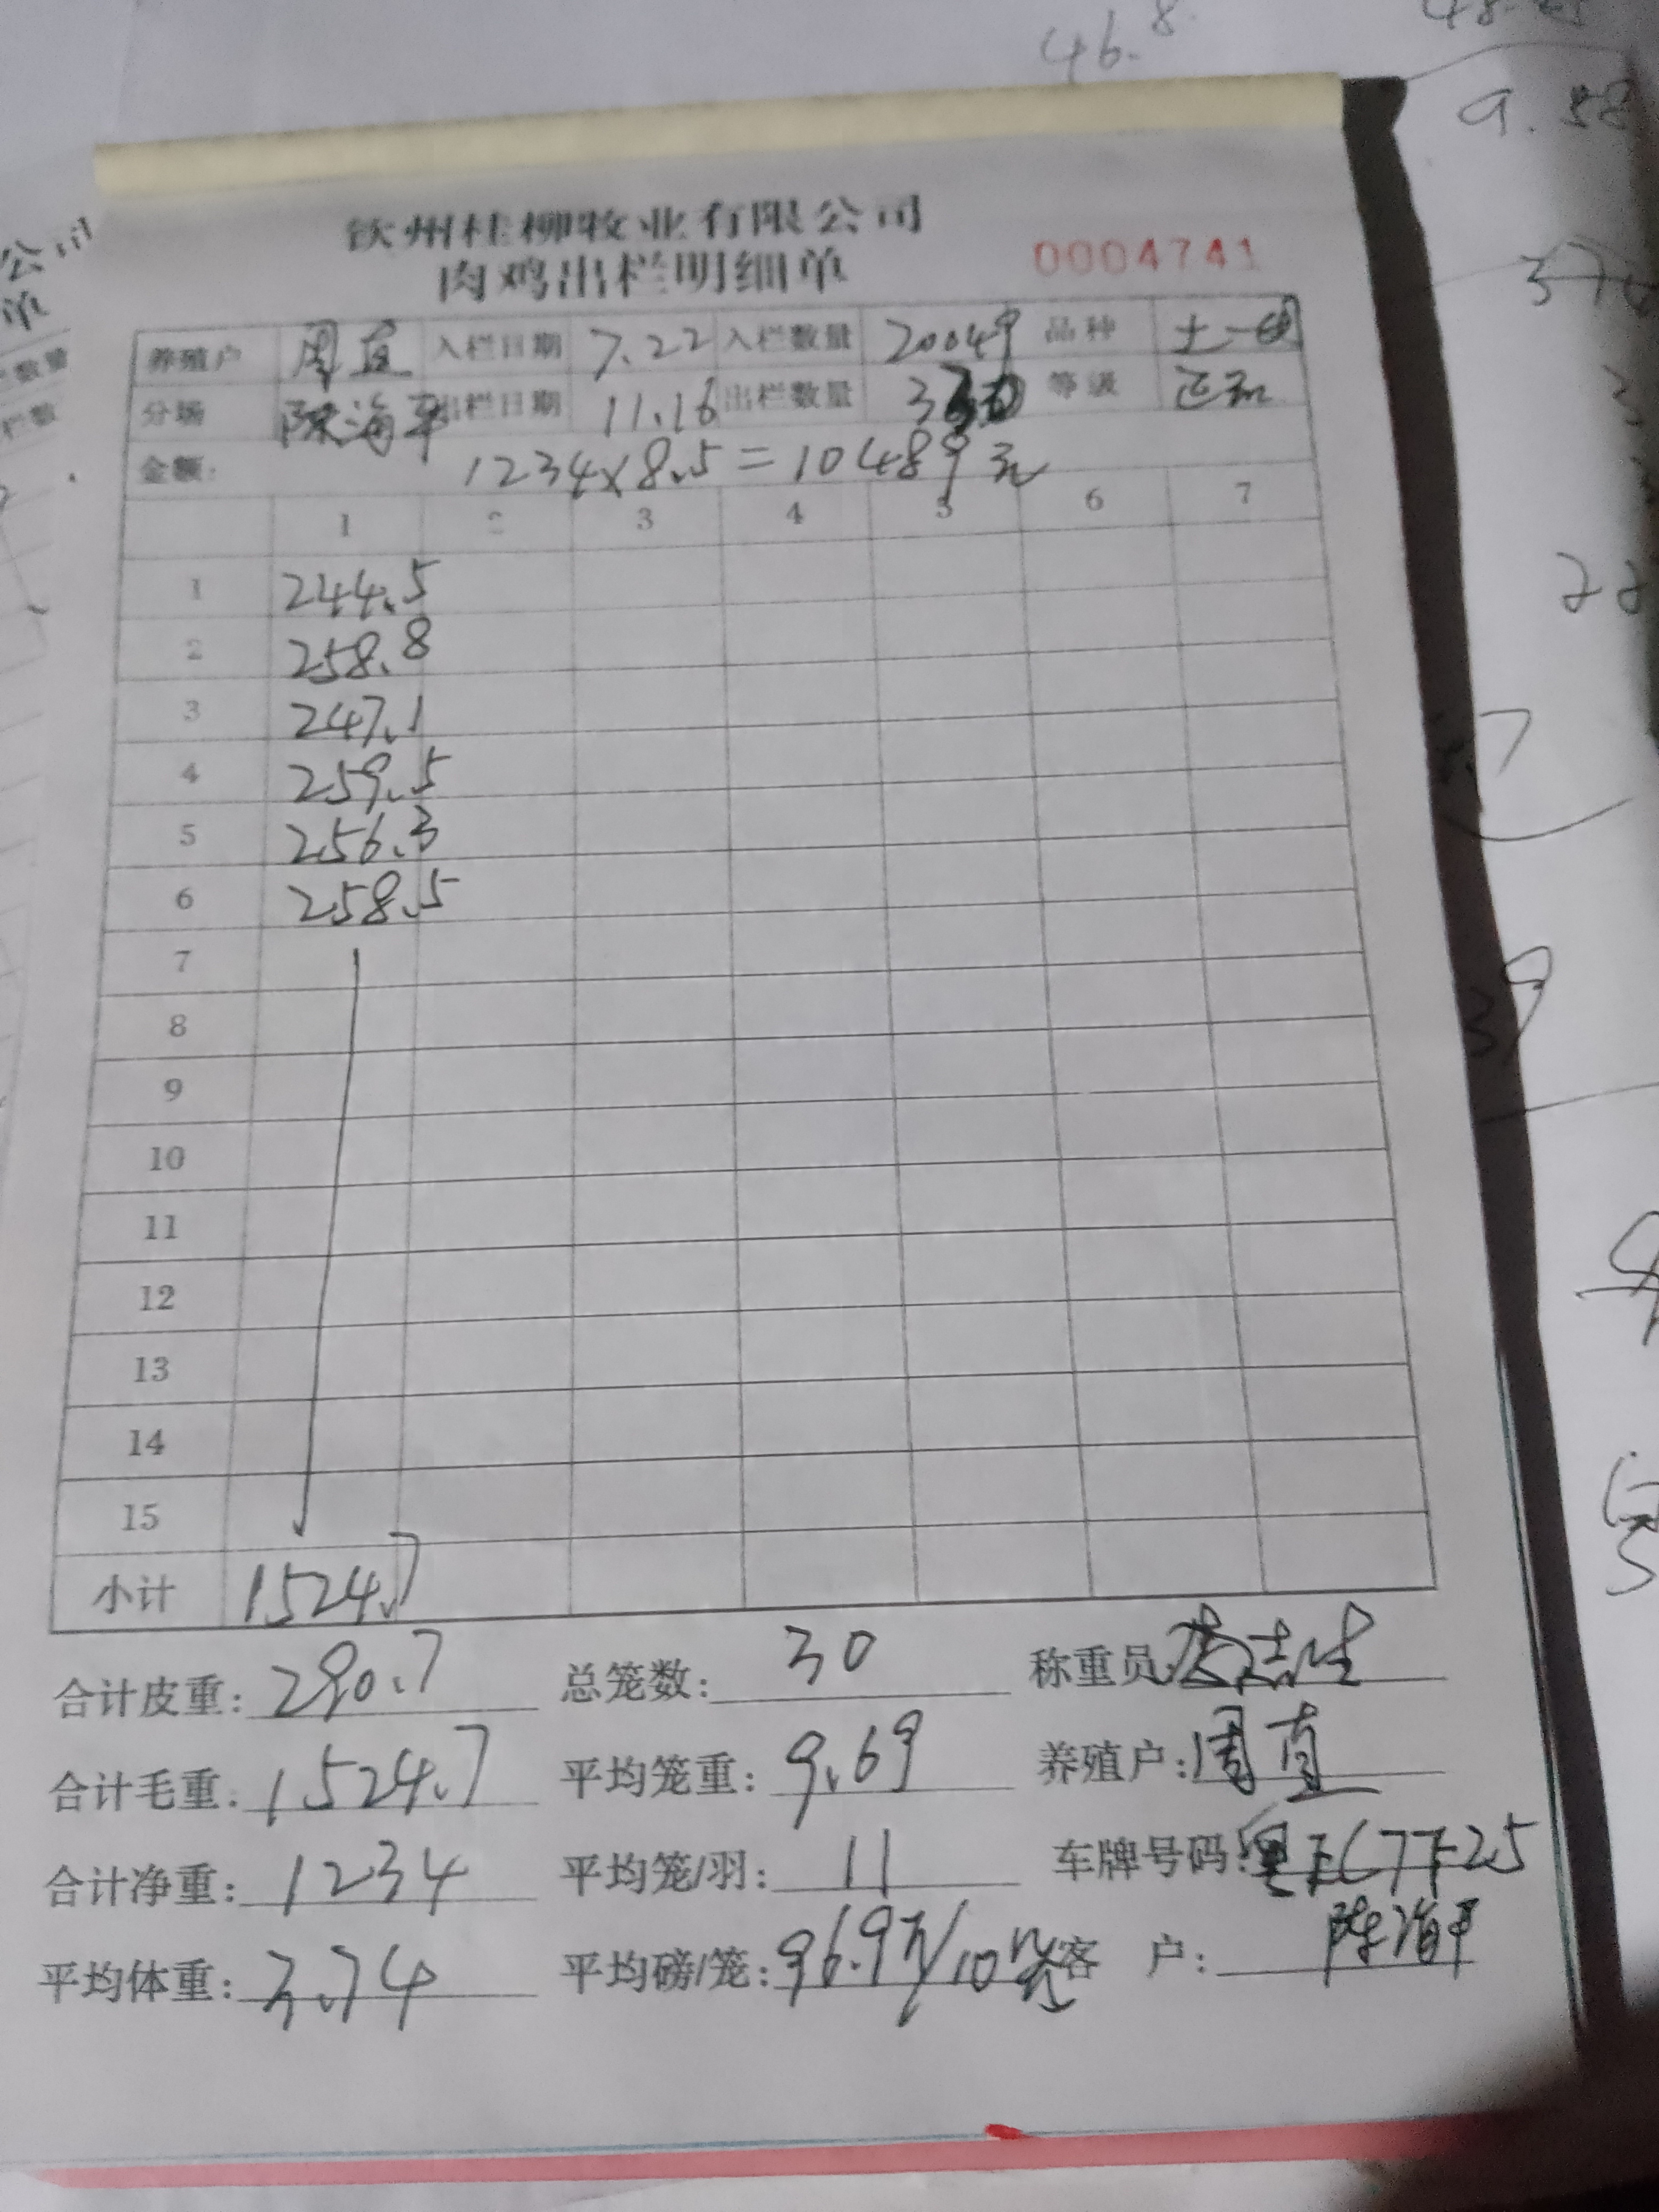 46.8
9.58
钦州桂柳牧业有限公司
肉鸡出栏明细单 0004741
公司
单
养殖户 周直 入栏日期 7.22 入栏数量 2004羽 品种 土一
分场 陈海平 出栏日期 11.16 出栏数量 330 等级 正品
金额: 1234x8.5=10489元
1 2 3 4 5 6 7
1 244.5
2 258.8
3 247.1
4 259.5
5 256.3
6 258.5
7
8
9
10
11
12
13
14
15
小计 1524.7
合计皮重: 290.7 总笼数: 30 称重员: 志生
合计毛重: 1524.7 平均笼重: 9.69 养殖户: 周直
合计净重: 1234 平均笼/羽: 11 车牌号码: 粤FC7725
平均体重: 3.74 平均磅/笼: 96.9斤/10笼 客 户: 陈海平